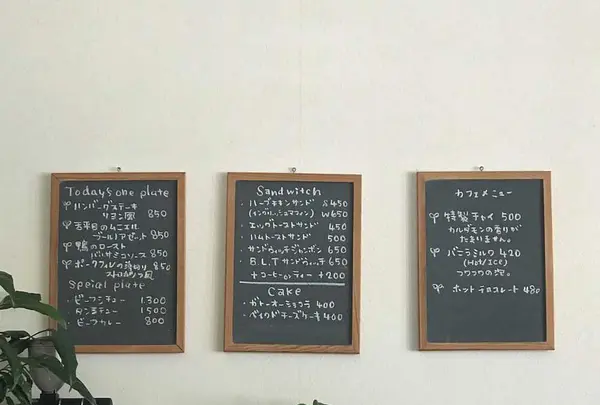 Today's one plate
ハンバーグステーキ
リヨン風 850
舌平目のムニエル
ブールノアゼット 850
鴨のロースト
バルサミコソース 850
ポークフィレの薄切り 850
風
Special plate
・ビーフシチュー 1.300
・タンシチュー 1500
・ビーフカレー 800
Sandwitch
・ハーブチキンサンド S450
(イングリッシュマフィン) W650
・エッグトーストサンド 450
・ハムトーストサンド 500
・サンドウィッチジャンボン 650
・B.L.Tサンドウィッチ 650
+コーヒーorティー +200
Cake
・ガトーオーショコラ 400
・ベイクドチーズケーキ 400
カフェメニュー
特製チャイ 500
カルダモンの香りが
たまりません。
バニラミルク 420
(Hot/ICE)
フワフワの泡。
ホットチョコレート 480